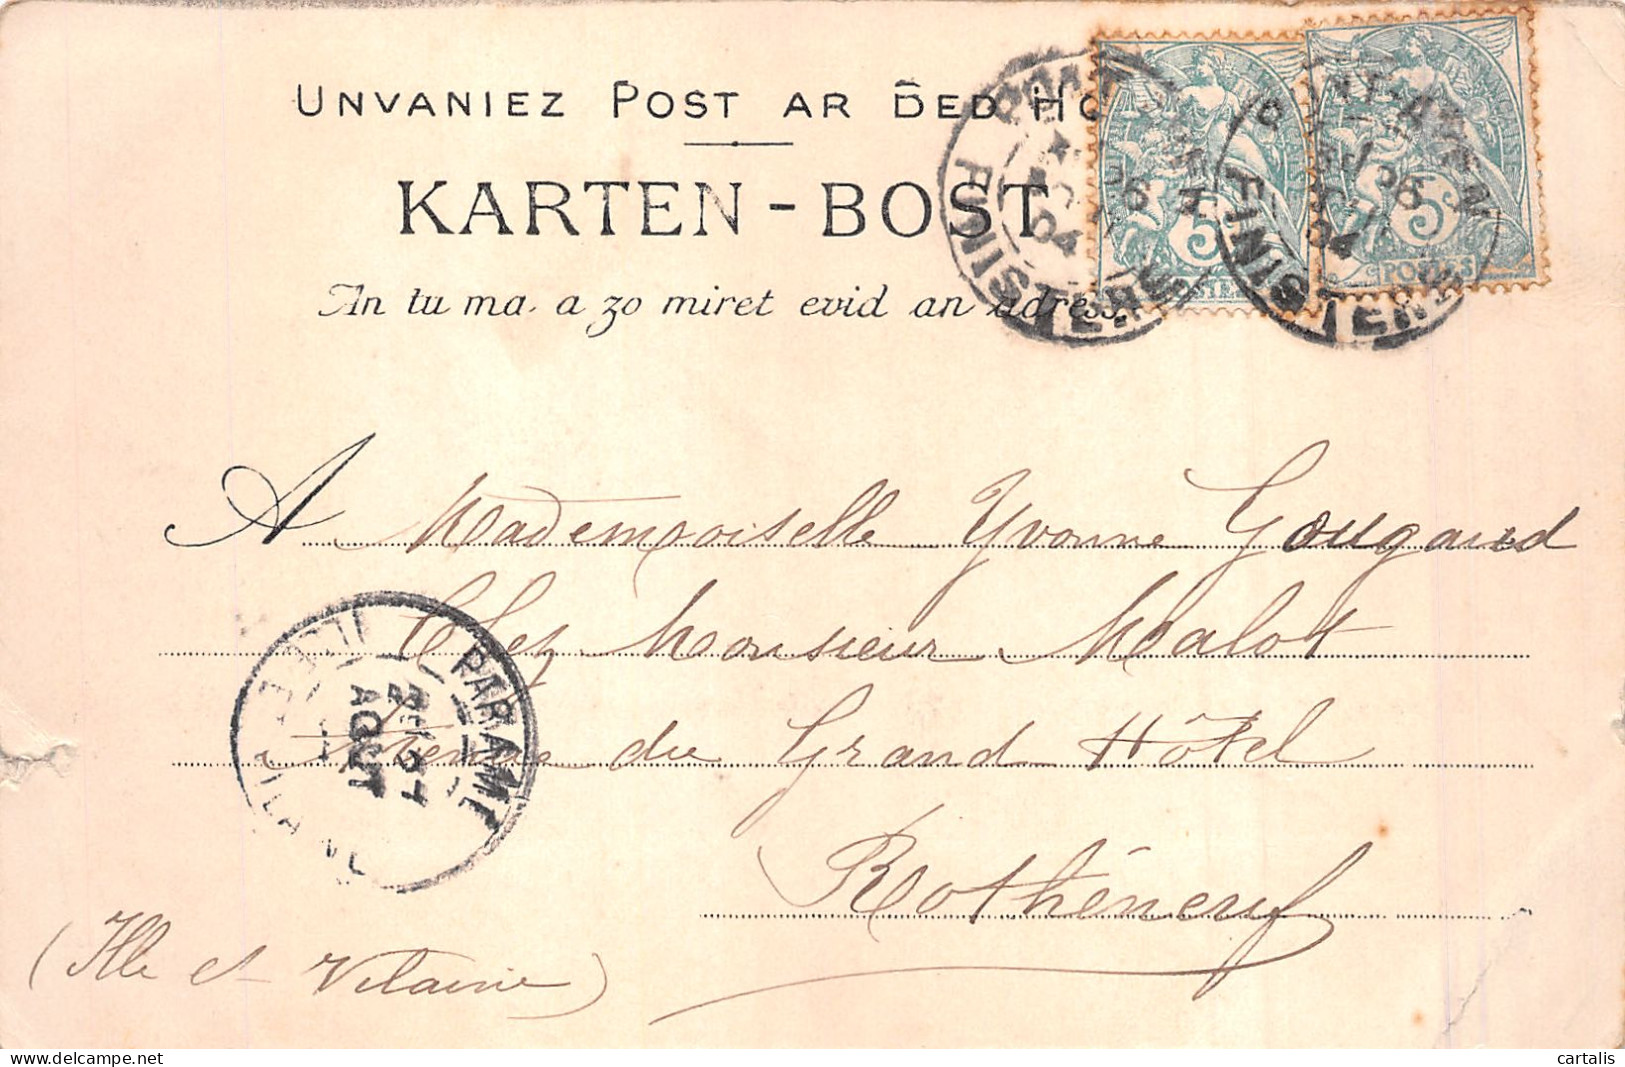 UNVANIEZ POST AR BED HO
KARTEN-BOST
An tu ma a zo miret evid an adress.
FINISTERE
04
5
FINISTERE
04
5
POSTES
A Mademoiselle Yvonne Gougaud
Chez Monsieur Malot
Tennis du Grand Hôtel
Rothéneuf
(Ille et Vilaine)
PARAMÉ
AOUT
cartalis